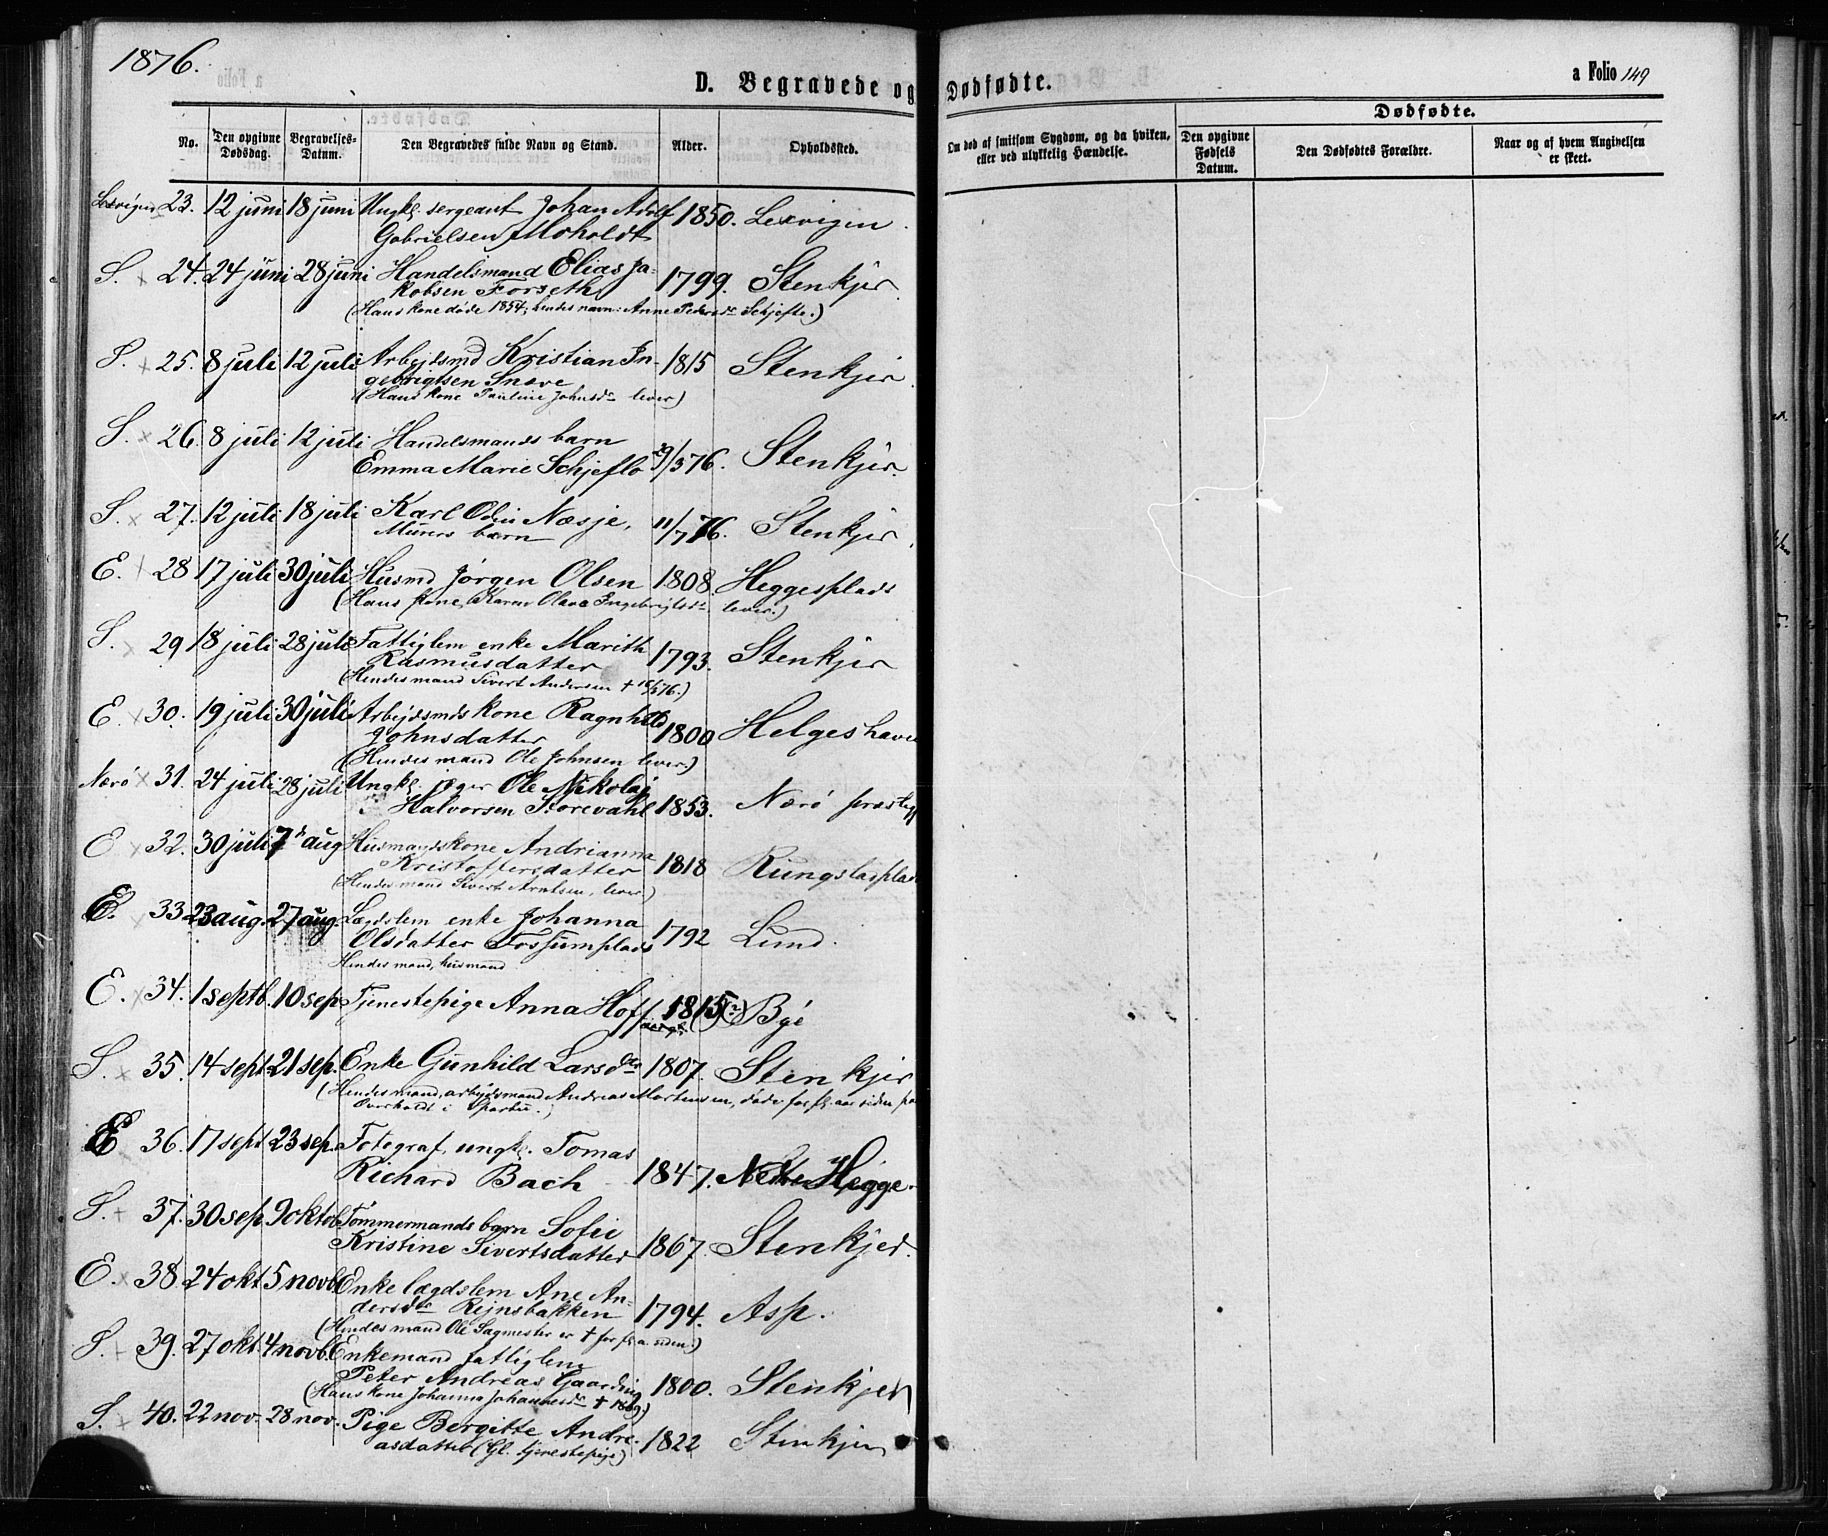 1876.
a Folio 149
D. Begravede og Dødfødte.
Dødfødte.
No. Den opgivne Dødsdag. Begravelses-Datum. Den Begravedes fulde Navn og Stand. Alder. Opholdssted. Om død af smitsom Sygdom, og da hviken, eller ved ulykkelig Hændelse. Den opgivne Fødsels Datum. Den Dødfødtes Forældre. Naar og af hvem Angivelsen er skeet.
Lexvigen 23. 12 juni 18 juni Ungk. sergeant Johan Adolf 1850. Lexvigen.
Gabrielsen Moholdt
S. x 24. 24 juni 28 juni Handelsmand Elias Ja- 1799. Stenkjer.
kobsen Forseth
(Hans kone døde 1854; hendes navn: Anne Pedersdr Schjefte.)
S. x 25. 8 juli 12 juli Arbejdsmd Kristian In- 1815 Stenkjer.
gebrigtsen Snøve
(Hans kone Pauline Johnsdr lever)
S. x 26. 8 juli 12 juli Handelsmands barn
Emma Marie Schjeflo 29/3 76. Stenkjer.
S. x 27. 12 juli 18 juli Karl Odin Næsje, 11/7 76. Stenkjer.
Murers barn
E. 28 17 juli 30 juli Husmd Jørgen Olsen 1808. Heggesplads
(Hans kone, Karen Olava Ingebrigtsdr lever.)
S. x 29 18 juli 28 juli Fattiglem enke Marith
Rasmusdatter 1793. Stenkjer
(Hendes mand Sivert Andersen † 16/5 76.)
E. x 30. 19 juli 30 juli Arbejdsmds kone Ragnhild
Johnsdatter 1800 Helgeshaven
(Hendes mand Ole Johnsen lever.)
Nærø x 31. 24 juli 28 juli Ungk. jæger Ole Nikolaj
Halvorsen Storevahl 1853. Nærø præstegj
E x 32. 30 juli 7 aug Husmandskone Andrianna
Kristoffersdatter 1818 Rungstadplads
(Hendes mand Sivert Arntsen, lever)
E. x 33 23 aug. 27 aug. Lægdslem enke Johanna
Olsdatter Fossumplads 1792 Lund.
Hendes mand, husmand
E. x 34. 1 septb. 10 sep. Tjenestepige Anna Hoff 1815 (?) Bye
S. x 35. 14 sept. 21 sep. Enke Gunhild Larsdtr 1807. Stenkjer
(Hendes mand, arbejdsmand Andreas Mortensen, døde for fl. aar siden paa
Overholdt i Sparbu.)
E 36. 17 sept 23 sep. Fotograf, ungk. Tomas
Richard Bach 1847. Nedre Hegge.
S. 37. 30 sep. 9 oktob Tømmermands barn Sofie
Kristine Sivertsdatter 1867. Stenkjer.
E. x 38. 24 okt. 5 novb. Enke lægdslem Ane An-
dersdr Rejnsbakken 1794. Asp.
(Hendes mand Ole Sagmester er † for fl. a. siden.)
S. 39. 27 okt. 4 novb. Enkemand fattiglem
Peter Andreas Gaarding 1800. Stenkjer
(Hans kone Johanna Johannesdr † 1869.)
S. x 40. 22 nov. 28 nov. Pige Bergitte Andre-
asdatter (Gl. tjenestepige) 1822 Stenkjer